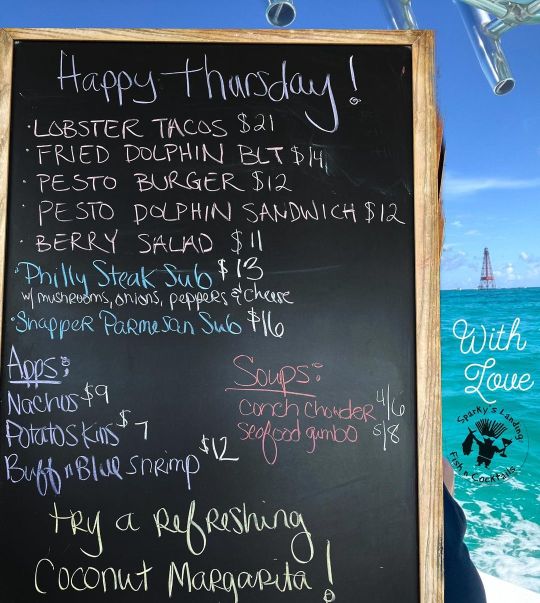 Happy Thursday!
·LOBSTER TACOS $21
·FRIED DOLPHIN BLT $14
·PESTO BURGER $12
·PESTO DOLPHIN SANDWICH $12
·BERRY SALAD $11
·Philly Steak Sub $13
w/ mushrooms, onions, peppers & cheese
·Snapper Parmesan Sub $16
Apps:
Nachos $9
Potato Skins $7
Buff n Blue shrimp $12
Soups:
conch chowder 4/6
seafood gumbo 5/8
try a Refreshing
Coconut Margarita!
With
Love
Sparky's Landing
Fish n' Cocktails